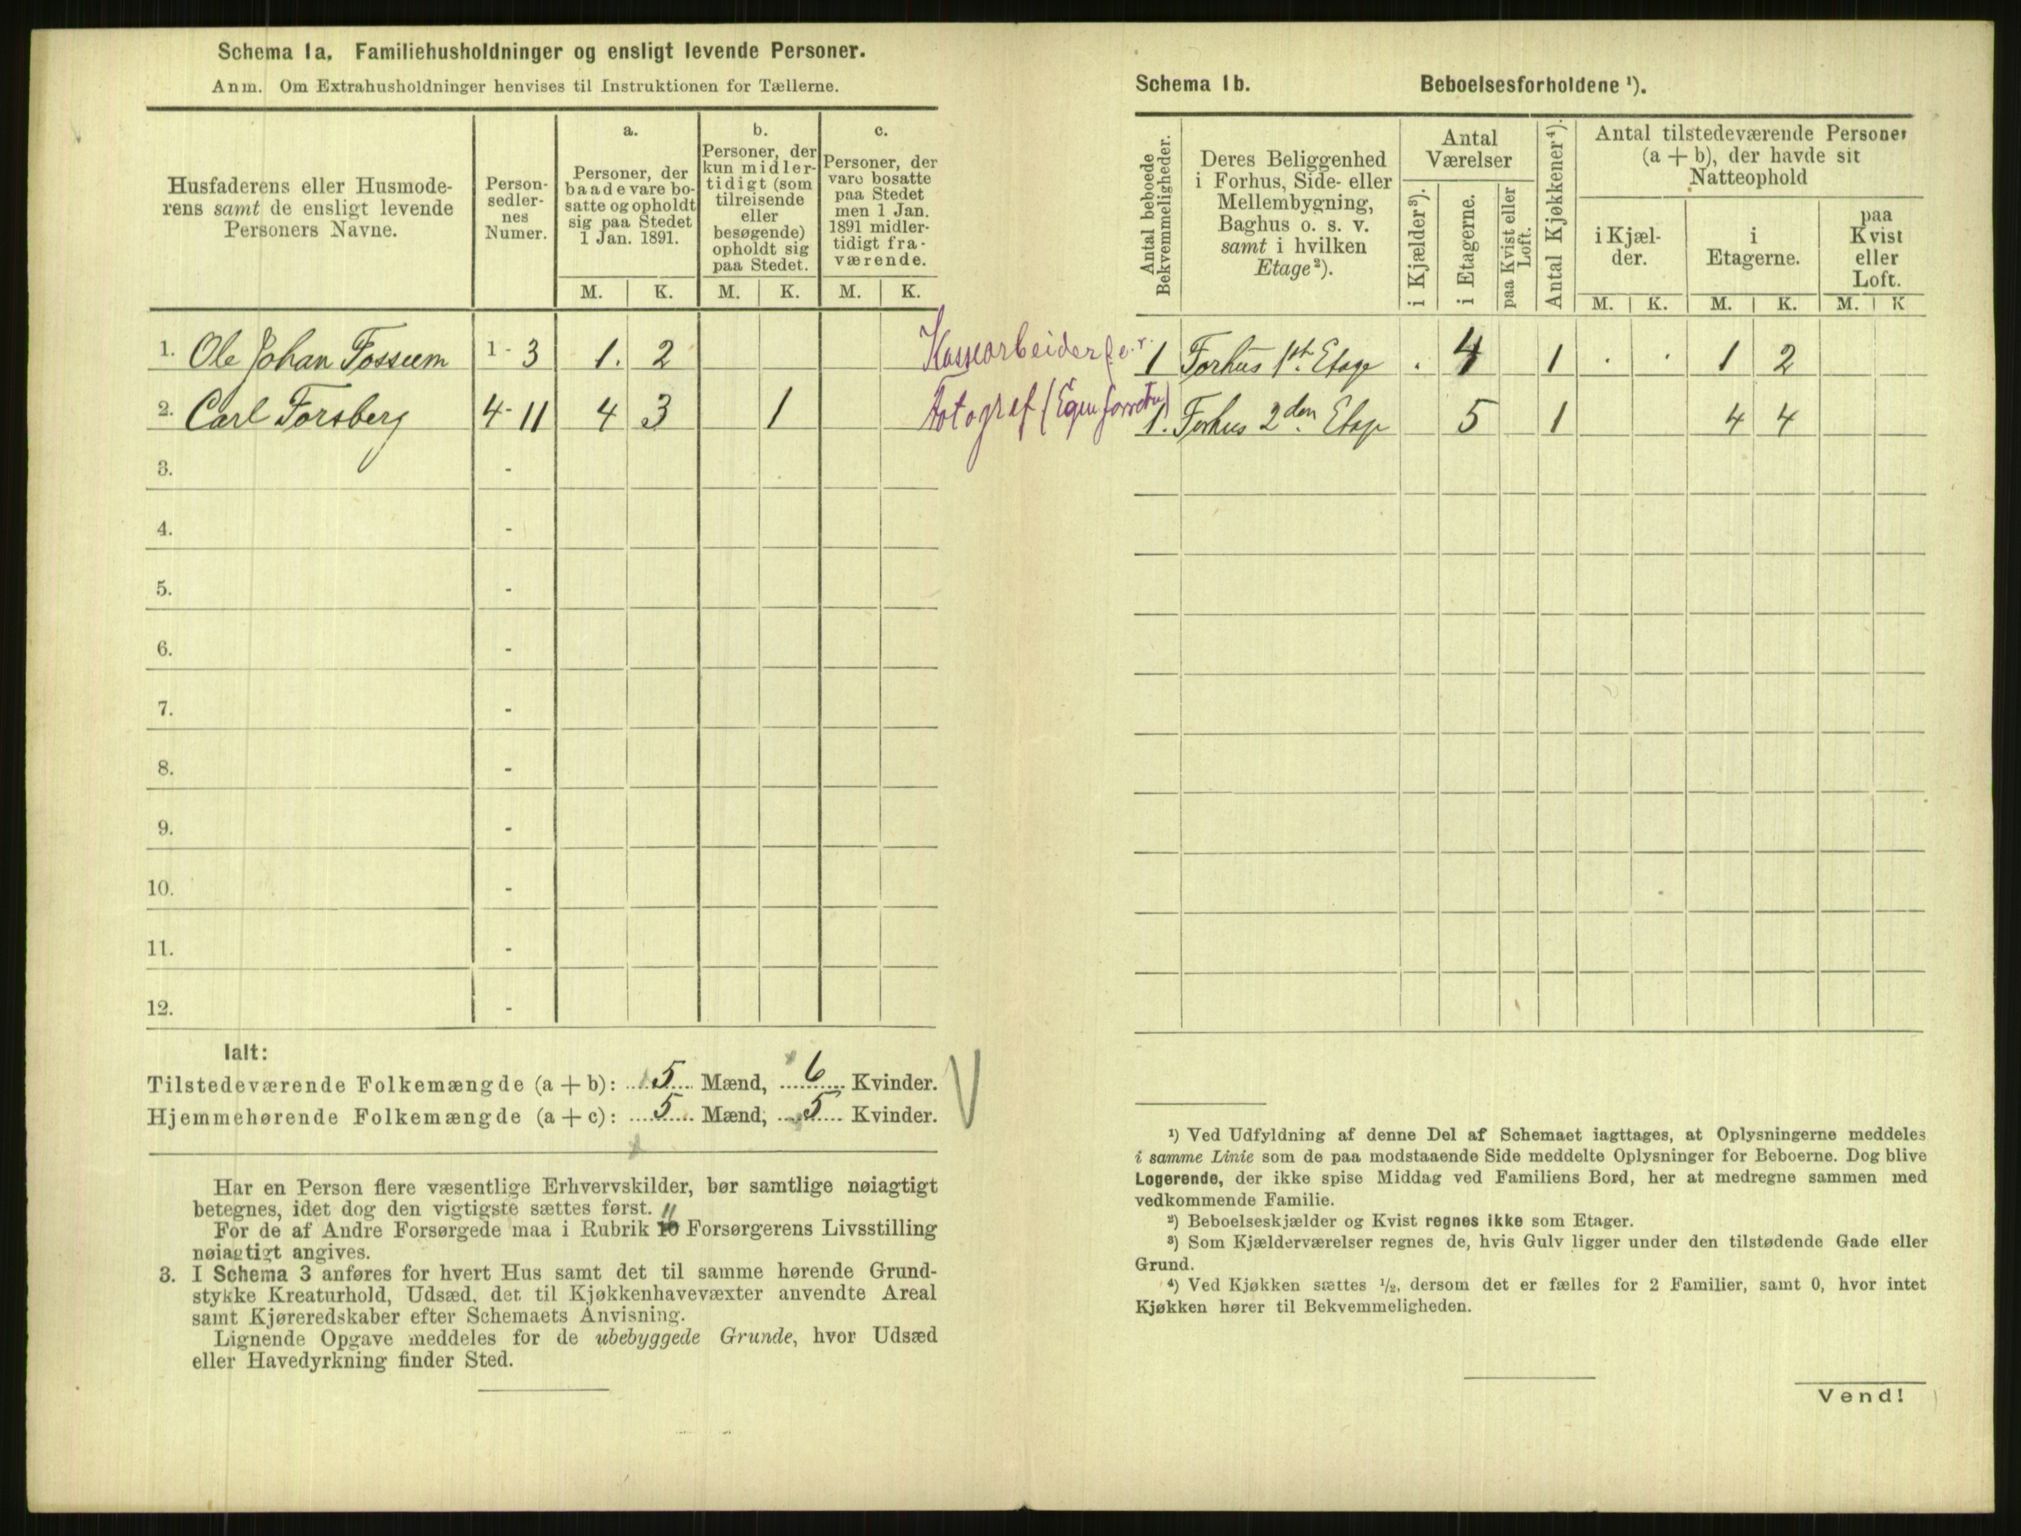 Schema 1a. Familiehusholdninger og ensligt levende Personer.
Anm. Om Extrahusholdninger henvises til Instruktionen for Tællerne.
Husfaderens eller Husmode-
rens samt de ensligt levende
Personers Navne.
Person-
sedler-
nes
Numer.
a.
Personer, der
baade vare bo-
satte og opholdt
sig paa Stedet
1 Jan. 1891.
b.
Personer, der
kun midler-
tidigt (som
tilreisende
eller
besøgende)
opholdt sig
paa Stedet.
c.
Personer, der
vare bosatte
paa Stedet
men 1 Jan.
1891 midler-
tidigt fra-
værende.
M. K. M. K. M. K.
1. Ole Johan Fossum 1 - 3 1. 2
2. Carl Forsberg 4 - 11 4 3 1
3. -
4. -
5. -
6. -
7. -
8. -
9. -
10. -
11. -
12. -
Ialt:
Tilstedeværende Folkemængde (a + b): 5 Mænd, 6 Kvinder.
Hjemmehørende Folkemængde (a + c): 5 Mænd, 5 Kvinder.
Har en Person flere væsentlige Erhvervskilder, bør samtlige nøiagtigt
betegnes, idet dog den vigtigste sættes først.
11
For de af Andre Forsørgede maa i Rubrik 10 Forsørgerens Livsstilling
nøiagtigt angives.
3. I Schema 3 anføres for hvert Hus samt det til samme hørende Grund-
stykke Kreaturhold, Udsæd, det til Kjøkkenhavevæxter anvendte Areal
samt Kjøreredskaber efter Schemaets Anvisning.
Lignende Opgave meddeles for de ubebyggede Grunde, hvor Udsæd
eller Havedyrkning finder Sted.
Schema 1b. Beboelsesforholdene ¹).
Antal beboede
Bekvemmeligheder.
Deres Beliggenhed
i Forhus, Side- eller
Mellembygning,
Baghus o. s. v.
samt i hvilken
Etage²).
Antal
Værelser
i Kjælder³).
i Etagerne.
paa Kvist eller
Loft.
Antal Kjøkkener⁴).
Antal tilstedeværende Personer
(a + b), der havde sit
Natteophold
i Kjæl-
der.
i
Etagerne.
paa
Kvist
eller
Loft.
M. K. M. K. M. K
1 Forhus 1ste Etage . 4 1 . . 1 2
Fotograf (Egen
1. Forhus 2den Etage 5 1 4 4
¹) Ved Udfyldning af denne Del af Schemaet iagttages, at Oplysningerne meddeles
i samme Linie som de paa modstaaende Side meddelte Oplysninger for Beboerne. Dog blive
Logerende, der ikke spise Middag ved Familiens Bord, her at medregne sammen med
vedkommende Familie.
²) Beboelseskjælder og Kvist regnes ikke som Etager.
³) Som Kjælderværelser regnes de, hvis Gulv ligger under den tilstødende Gade eller
Grund.
⁴) Ved Kjøkken sættes ½, dersom det er fælles for 2 Familier, samt 0, hvor intet
Kjøkken hører til Bekvemmeligheden.
Vend!